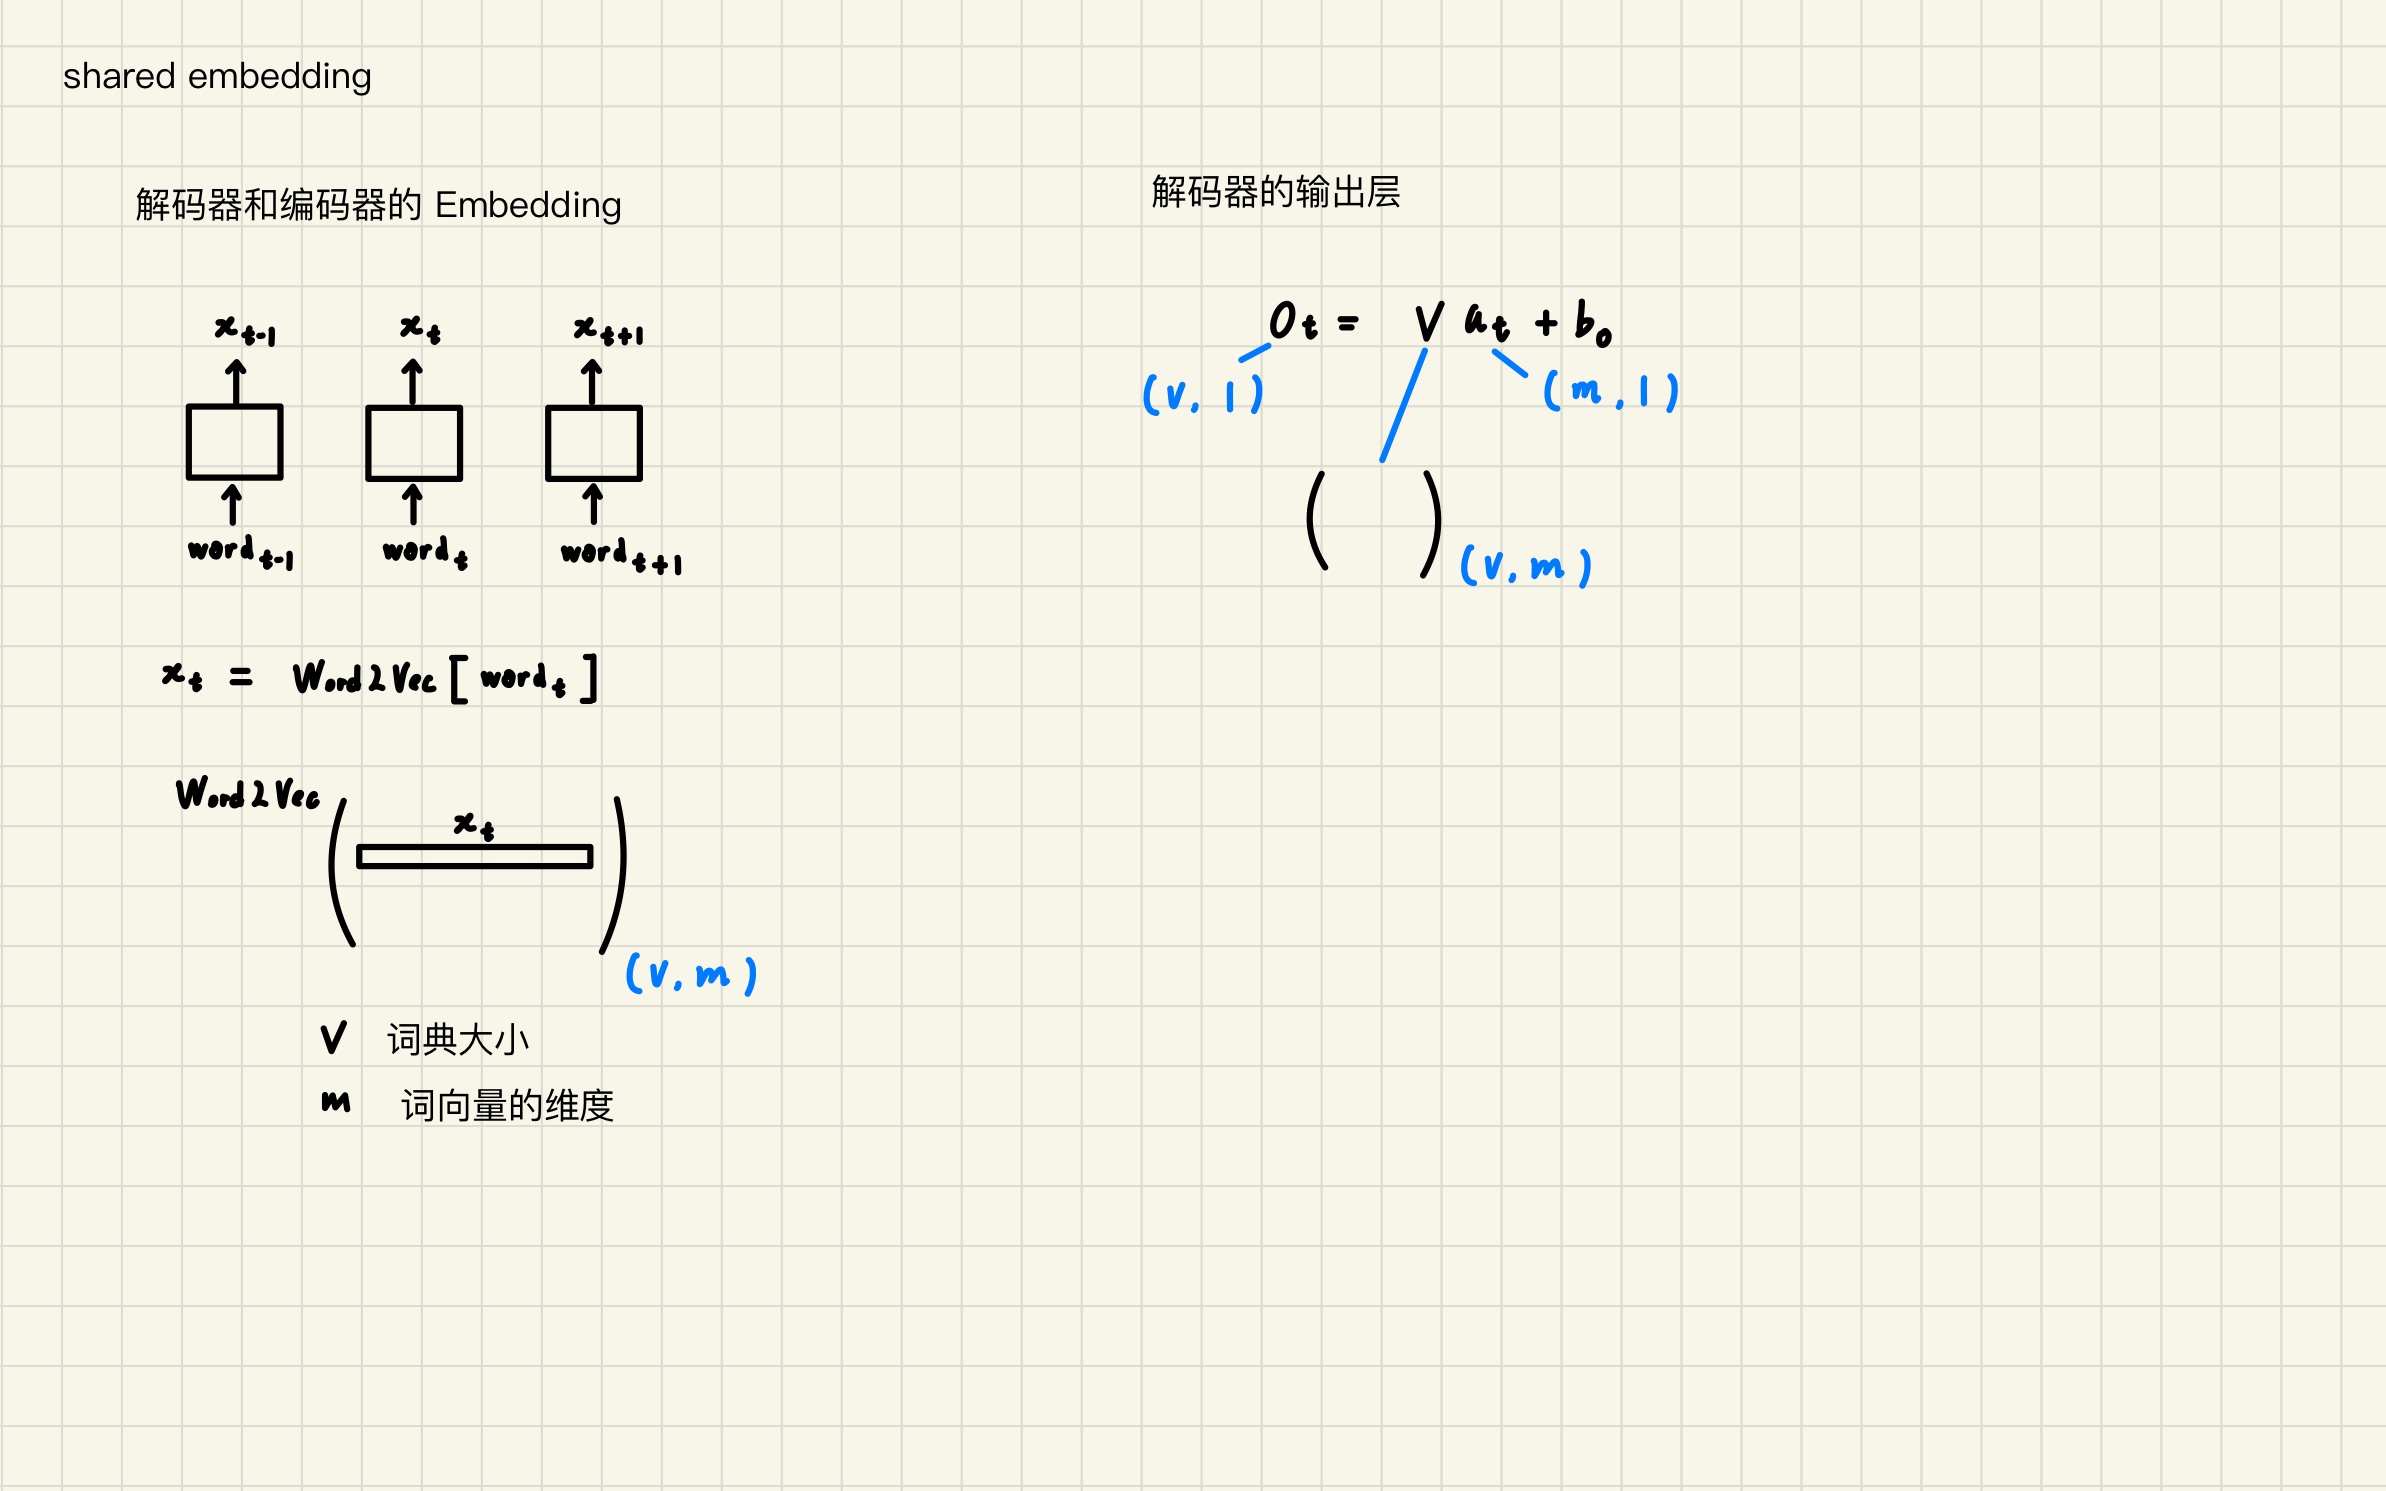 shared embedding
解码器和编码器的 Embedding
x_{t-1} x_t x_{t+1}
word_{t-1} word_t word_{t+1}
x_t = Word2Vec [ word_t ]
Word2Vec
x_t
(v, m)
V 词典大小
m 词向量的维度
解码器的输出层
O_t = V a_t + b_o
(v, 1) (m, 1)
(v, m)